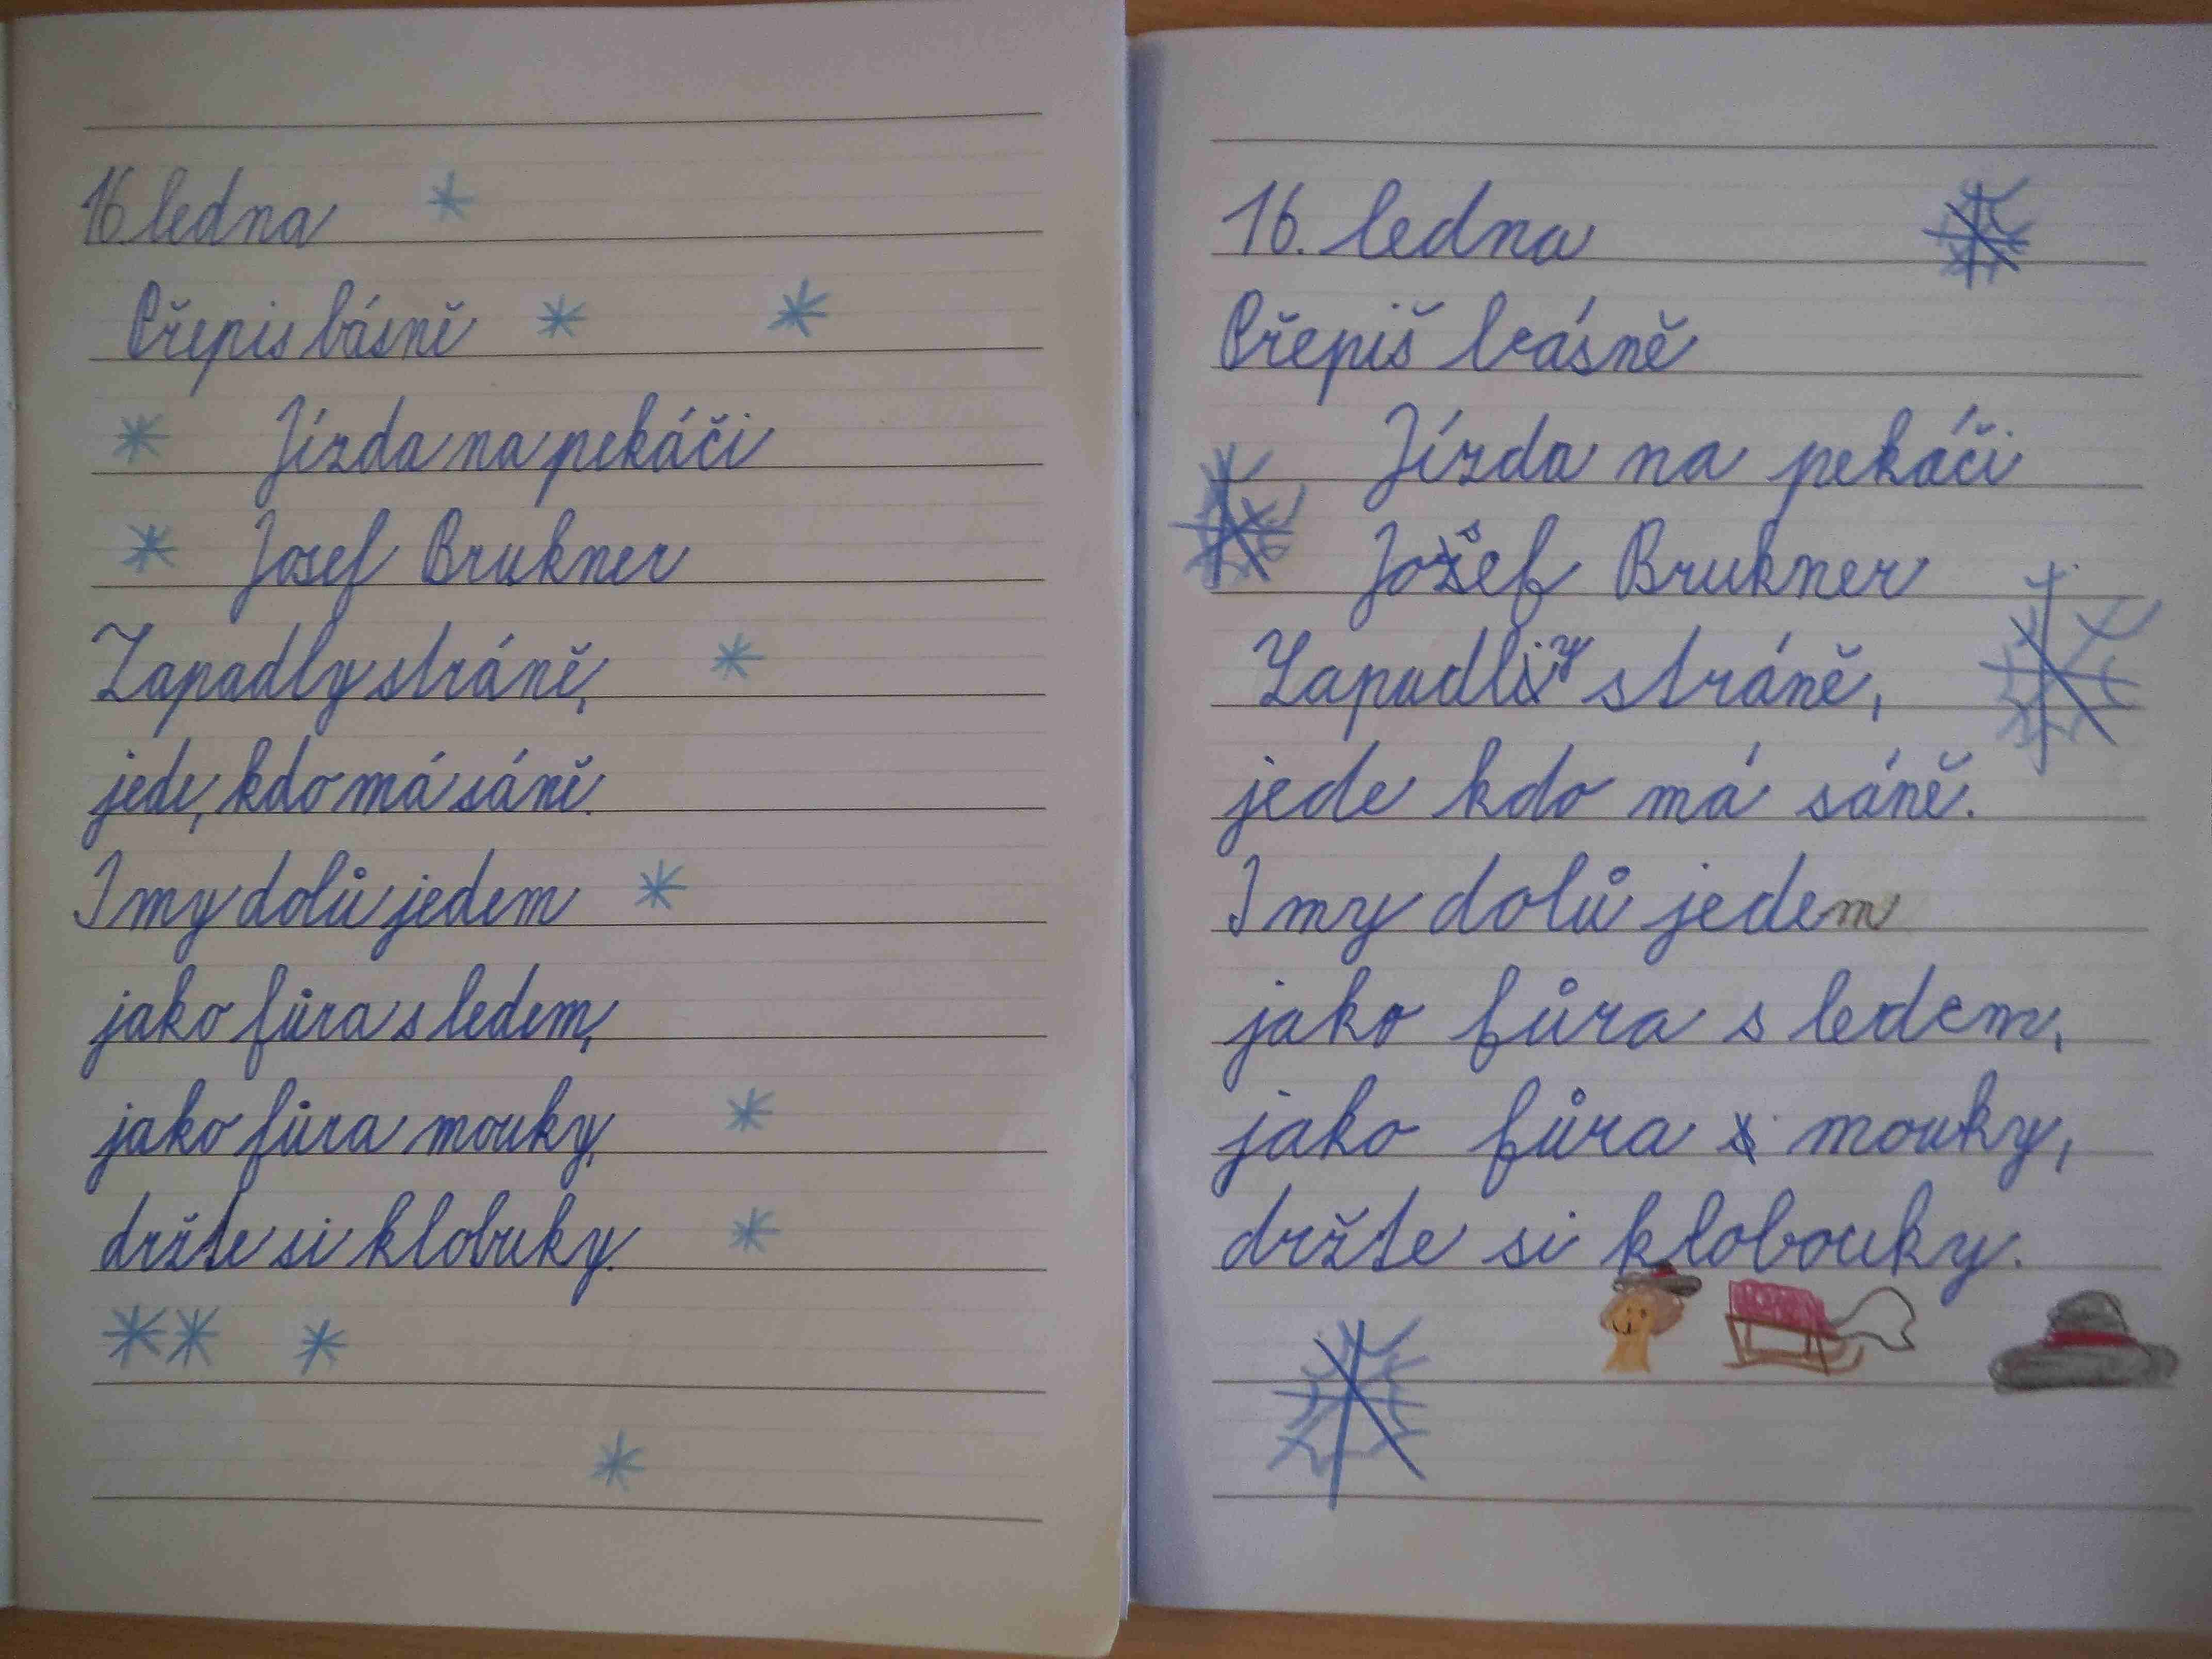 16. ledna
Přepis básně
Jízda na pekáči
Josef Brukner
Zapadly stráně,
jede, kdo má sáně.
I my dolů jedem
jako fůra s ledem,
jako fůra mouky,
držte si klobuky.
16. ledna
Přepiš básně
Jízda na pekáči
Jošef Brukner
Zapadly stráně,
jede kdo má sáně.
I my dolů jedem
jako fůra s ledem,
jako fůra mouky,
držte si klobouky.